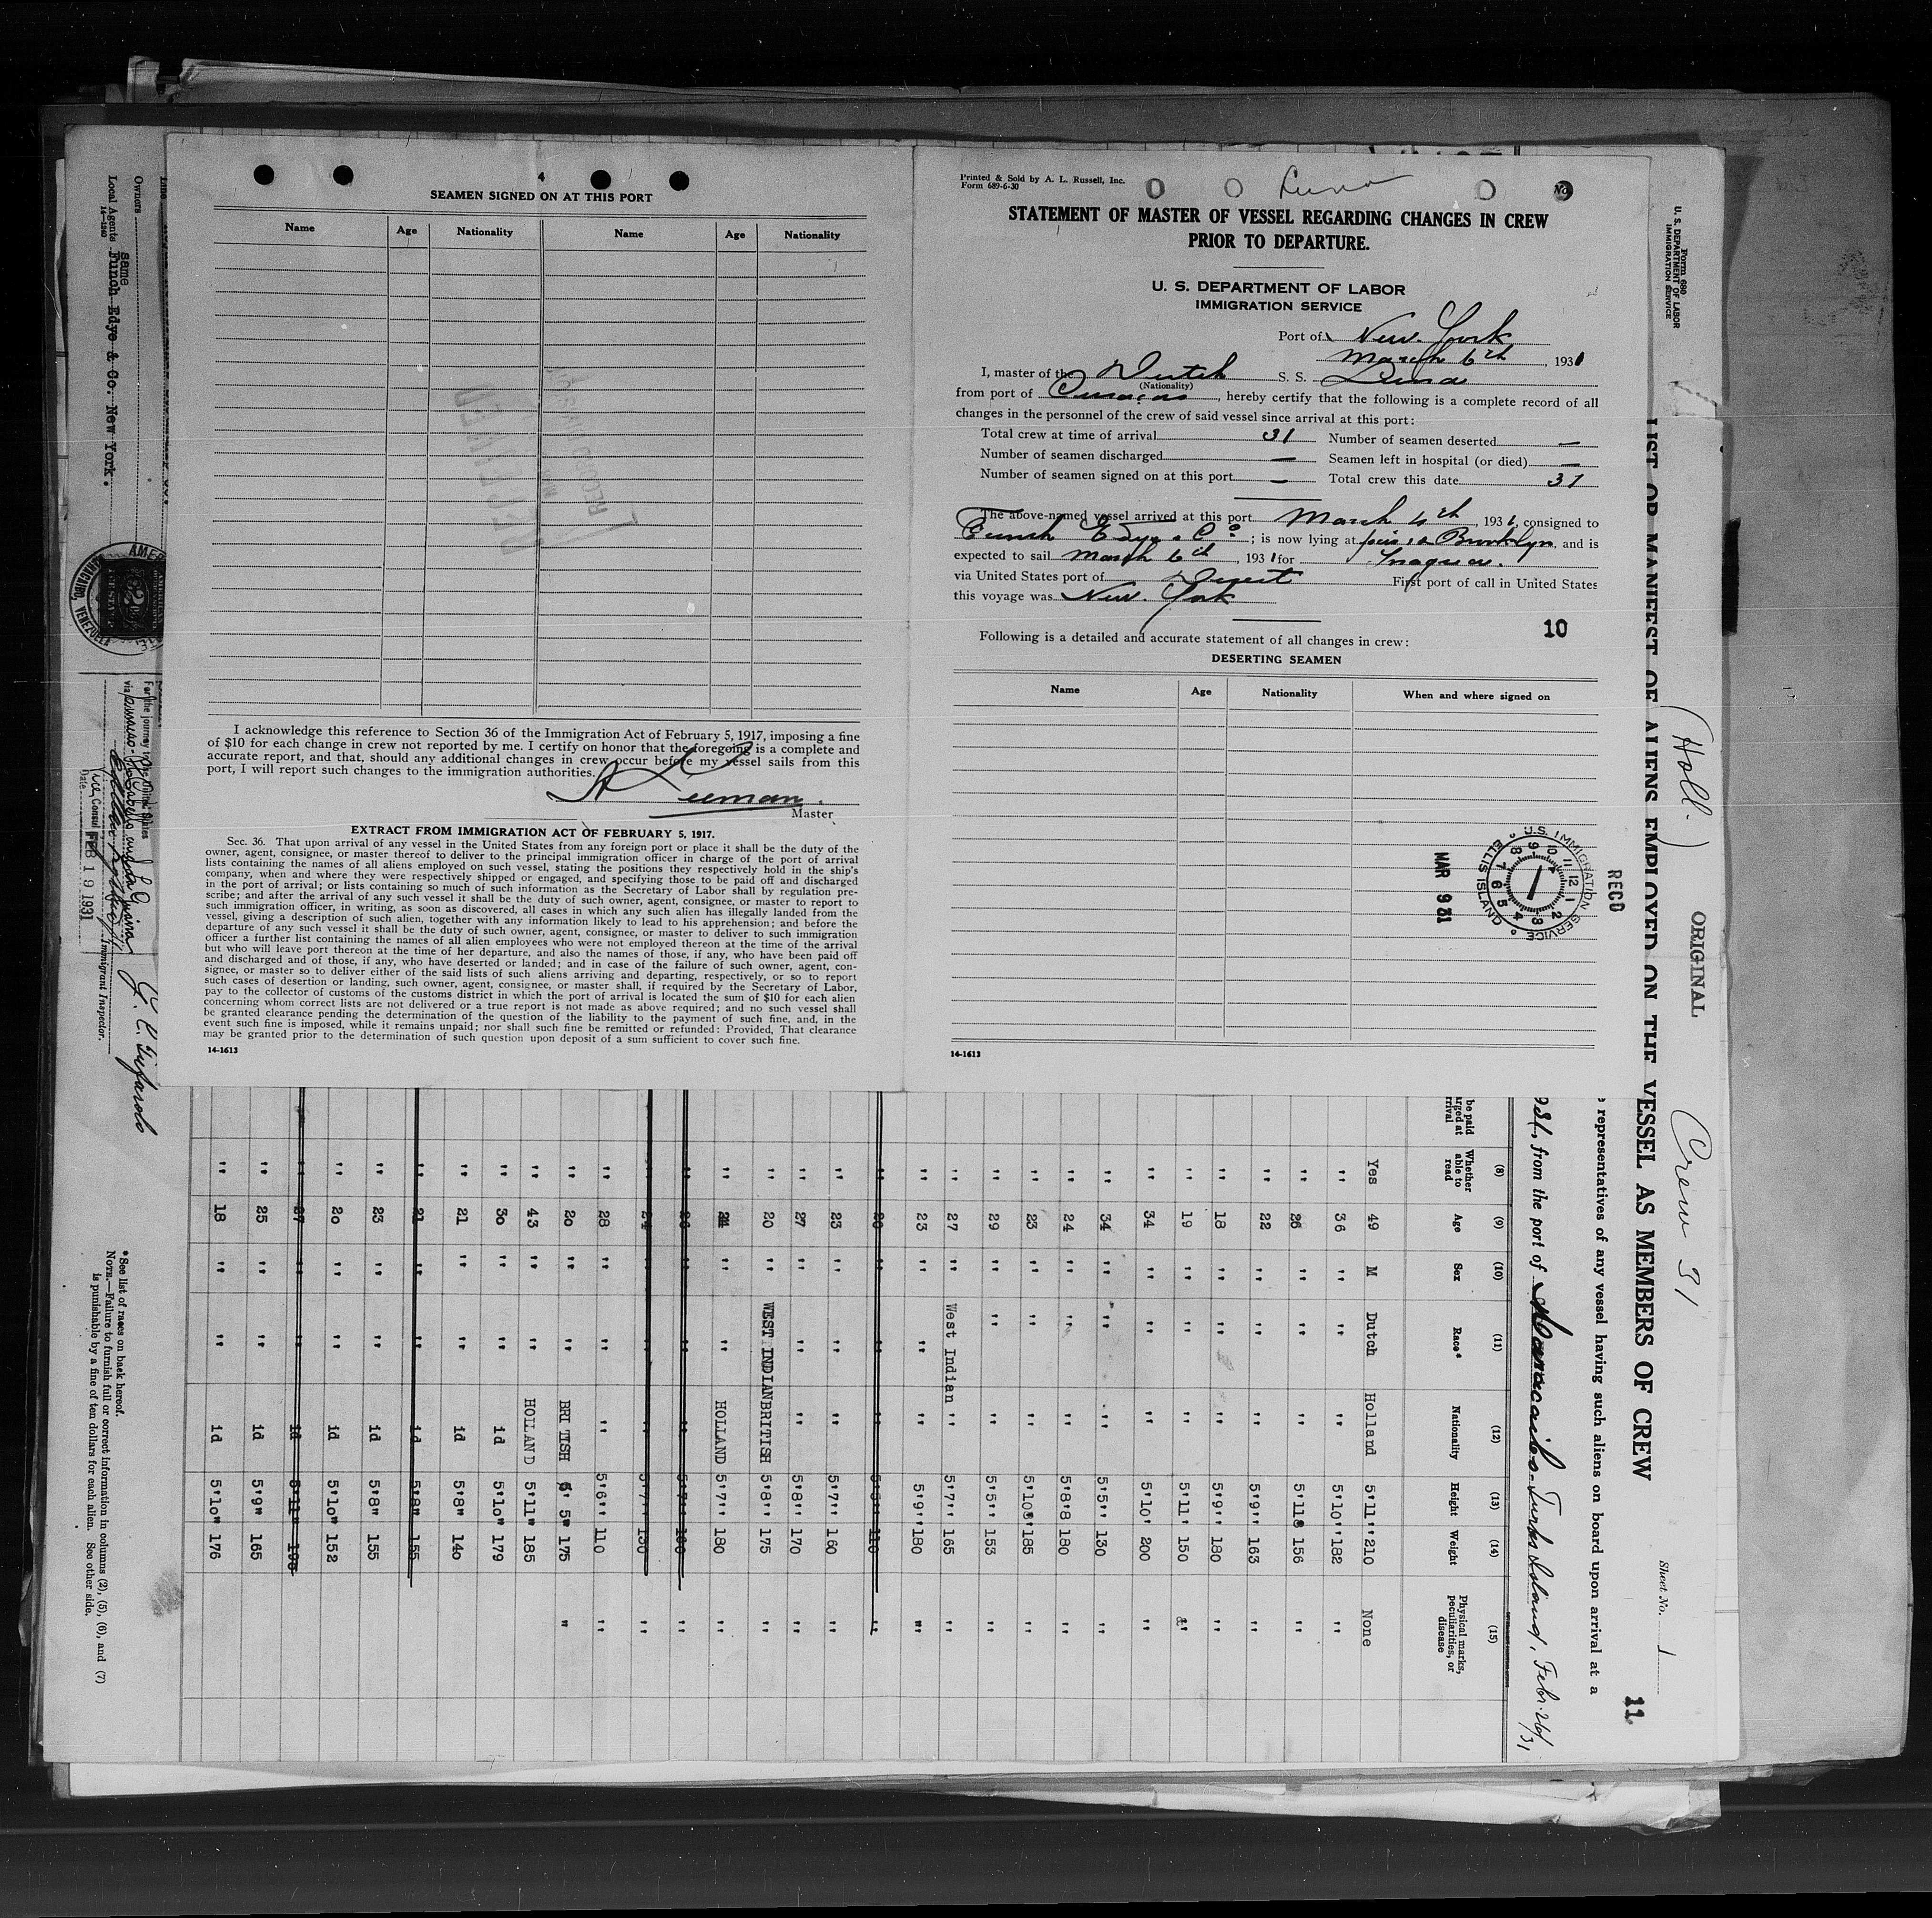 4
SEAMEN SIGNED ON AT THIS PORT
Name Age Nationality Name Age Nationality
I acknowledge this reference to Section 36 of the Immigration Act of February 5, 1917, imposing a fine
of $10 for each change in crew not reported by me. I certify on honor that the foregoing is a complete and
accurate report, and that, should any additional changes in crew occur before my vessel sails from this
port, I will report such changes to the immigration authorities.
Master
EXTRACT FROM IMMIGRATION ACT OF FEBRUARY 5, 1917.
Sec. 36. That upon arrival of any vessel in the United States from any foreign port or place it shall be the duty of the
owner, agent, consignee, or master thereof to deliver to the principal immigration officer in charge of the port of arrival
lists containing the names of all aliens employed on such vessel, stating the positions they respectively hold in the ship's
company, when and where they were respectively shipped or engaged, and specifying those to be paid off and discharged
in the port of arrival; or lists containing so much of such information as the Secretary of Labor shall by regulation pre-
scribe; and after the arrival of any such vessel it shall be the duty of such owner, agent, consignee, or master to report to
such immigration officer, in writing, as soon as discovered, all cases in which any such alien has illegally landed from the
vessel, giving a description of such alien, together with any information likely to lead to his apprehension; and before the
departure of any such vessel it shall be the duty of such owner, agent, consignee, or master to deliver to such immigration
officer a further list containing the names of all alien employees who were not employed thereon at the time of the arrival
but who will leave port thereon at the time of her departure, and also the names of those, if any, who have been paid off
and discharged and of those, if any, who have deserted or landed; and in case of the failure of such owner, agent, con-
signee, or master so to deliver either of the said lists of such aliens arriving and departing, respectively, or so to report
such cases of desertion or landing, such owner, agent, consignee, or master shall, if required by the Secretary of Labor,
pay to the collector of customs of the customs district in which the port of arrival is located the sum of $10 for each alien
concerning whom correct lists are not delivered or a true report is not made as above required; and no such vessel shall
be granted clearance pending the determination of the question of the liability to the payment of such fine, and, in the
event such fine is imposed, while it remains unpaid; nor shall such fine be remitted or refunded: Provided, That clearance
may be granted prior to the determination of such question upon deposit of a sum sufficient to cover such fine.
14-1613
Printed & Sold by A. L. Russell, Inc.
Form 689-6-30
Luna
No
STATEMENT OF MASTER OF VESSEL REGARDING CHANGES IN CREW
PRIOR TO DEPARTURE.
U. S. DEPARTMENT OF LABOR
IMMIGRATION SERVICE
Port of New York
March 6th, 1931
I, master of the Dutch S. S. Luna
(Nationality)
from port of Curaçao, hereby certify that the following is a complete record of all
changes in the personnel of the crew of said vessel since arrival at this port:
Total crew at time of arrival 31 Number of seamen deserted —
Number of seamen discharged — Seamen left in hospital (or died) —
Number of seamen signed on at this port — Total crew this date 31
The above-named vessel arrived at this port March 4th, 1931, consigned to
Funch Edye & Co; is now lying at Brooklyn, and is
expected to sail March 6th, 1931 for
via United States port of Direct First port of call in United States
this voyage was New York
10
Following is a detailed and accurate statement of all changes in crew:
DESERTING SEAMEN
Name Age Nationality When and where signed on
14-1613
RECD
U.S. IMMIGRATION SERVICE
ELLIS ISLAND
MAR 9 31
Form 680
U. S. DEPARTMENT OF LABOR
IMMIGRATION SERVICE
(Holl.)
ORIGINAL
Crew 31
Sheet No. 1
LIST OR MANIFEST OF ALIENS EMPLOYED ON THE VESSEL AS MEMBERS OF CREW
11
representatives of any vessel having such aliens on board upon arrival at a
from the port of Maracaibo-Turks Island, Febr. 26/31
(8) (9) (10) (11) (12) (13) (14) (15)
Whether able to read Age Sex Race* Nationality Height Weight Physical marks, peculiarities, or disease
Yes 49 M Dutch Holland 5'11'' 210 None
'' 36 '' '' '' 5'10'' 182 ''
'' 26 '' '' '' 5'11 156 ''
'' 22 '' '' '' 5'9'' 163
'' 18 '' '' '' 5'9'' 180 ''
'' 19 '' '' '' 5'11' 150
'' 34 '' '' '' 5'10' 200 ''
'' 34 '' '' '' 5'5'' 130 ''
'' 24 '' '' '' 5'8 180 ''
'' 23 '' '' '' 5'10 185 ''
'' 29 '' '' '' 5'5'' 153 ''
'' 27 '' West Indian '' 5'7'' 165 ''
'' 23 '' '' '' 5'9'' 180 ''
'' 20 '' '' '' 5'5'' 110 ''
'' 23 '' '' '' 5'7'' 160 ''
'' 27 '' '' '' 5'8'' 170 ''
'' 20 '' WEST INDIAN BRITISH 5'8'' 175 ''
'' 24 '' '' HOLLAND 5'7'' 180 ''
'' 26 '' '' '' 5'7'' 160 ''
'' 24 '' '' '' 5'7'' 130 ''
'' 28 '' '' '' 5'6'' 110 ''
'' 20 '' '' BRITISH 5' 5" 175 "
'' 43 '' '' HOLLAND 5'11" 185
'' 30 '' '' id 5'10" 179
'' 21 '' '' id 5'8" 140
'' 21 '' '' id 5'8" 155
'' 23 '' '' id 5'8" 155
'' 20 '' '' id 5'10" 152
'' 27 '' '' id 5'11" 190
'' 25 '' '' id 5'9" 165
'' 18 '' '' id 5'10" 176
Owners
same
Local Agents Funch Edye & Co. New York.
14-1240
AMERICAN
MARACAIBO, VENEZUELA
For the journey to the United States
via
Vice Consul
Date FEB 19 1931
Immigrant Inspector.
*See list of races on back hereof.
NOTE.—Failure to furnish full or correct information in columns (2), (5), (6), and (7)
is punishable by a fine of ten dollars for each alien. See other side.